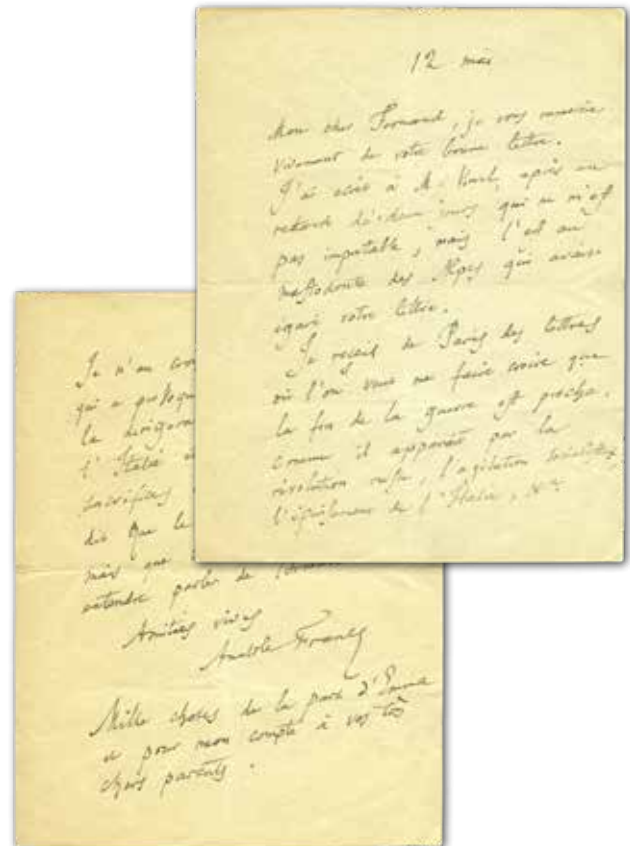 12 mai
Mon cher Fernand, je vous remercie
vivement de votre bonne lettre.
J'ai écrit à M. après un
retard de deux jours qui ne m'est
pas imputable, mais l'est au
mastodonte des Alpes qui avait
égaré votre lettre.
Je reçois de Paris des lettres
où l'on veut me faire croire que
la fin de la guerre est proche.
comme il apparaît par la
révolution russe, l'agitation socialiste,
l'épuisement de l'Italie,
Je n'en
qui a
la
l'Italie
sacrifices
dit que le
mais que
entendre parler de
Amitiés vives
Anatole France
Mille choses de la part d'Emma
et pour mon compte à vos très
chers parents.